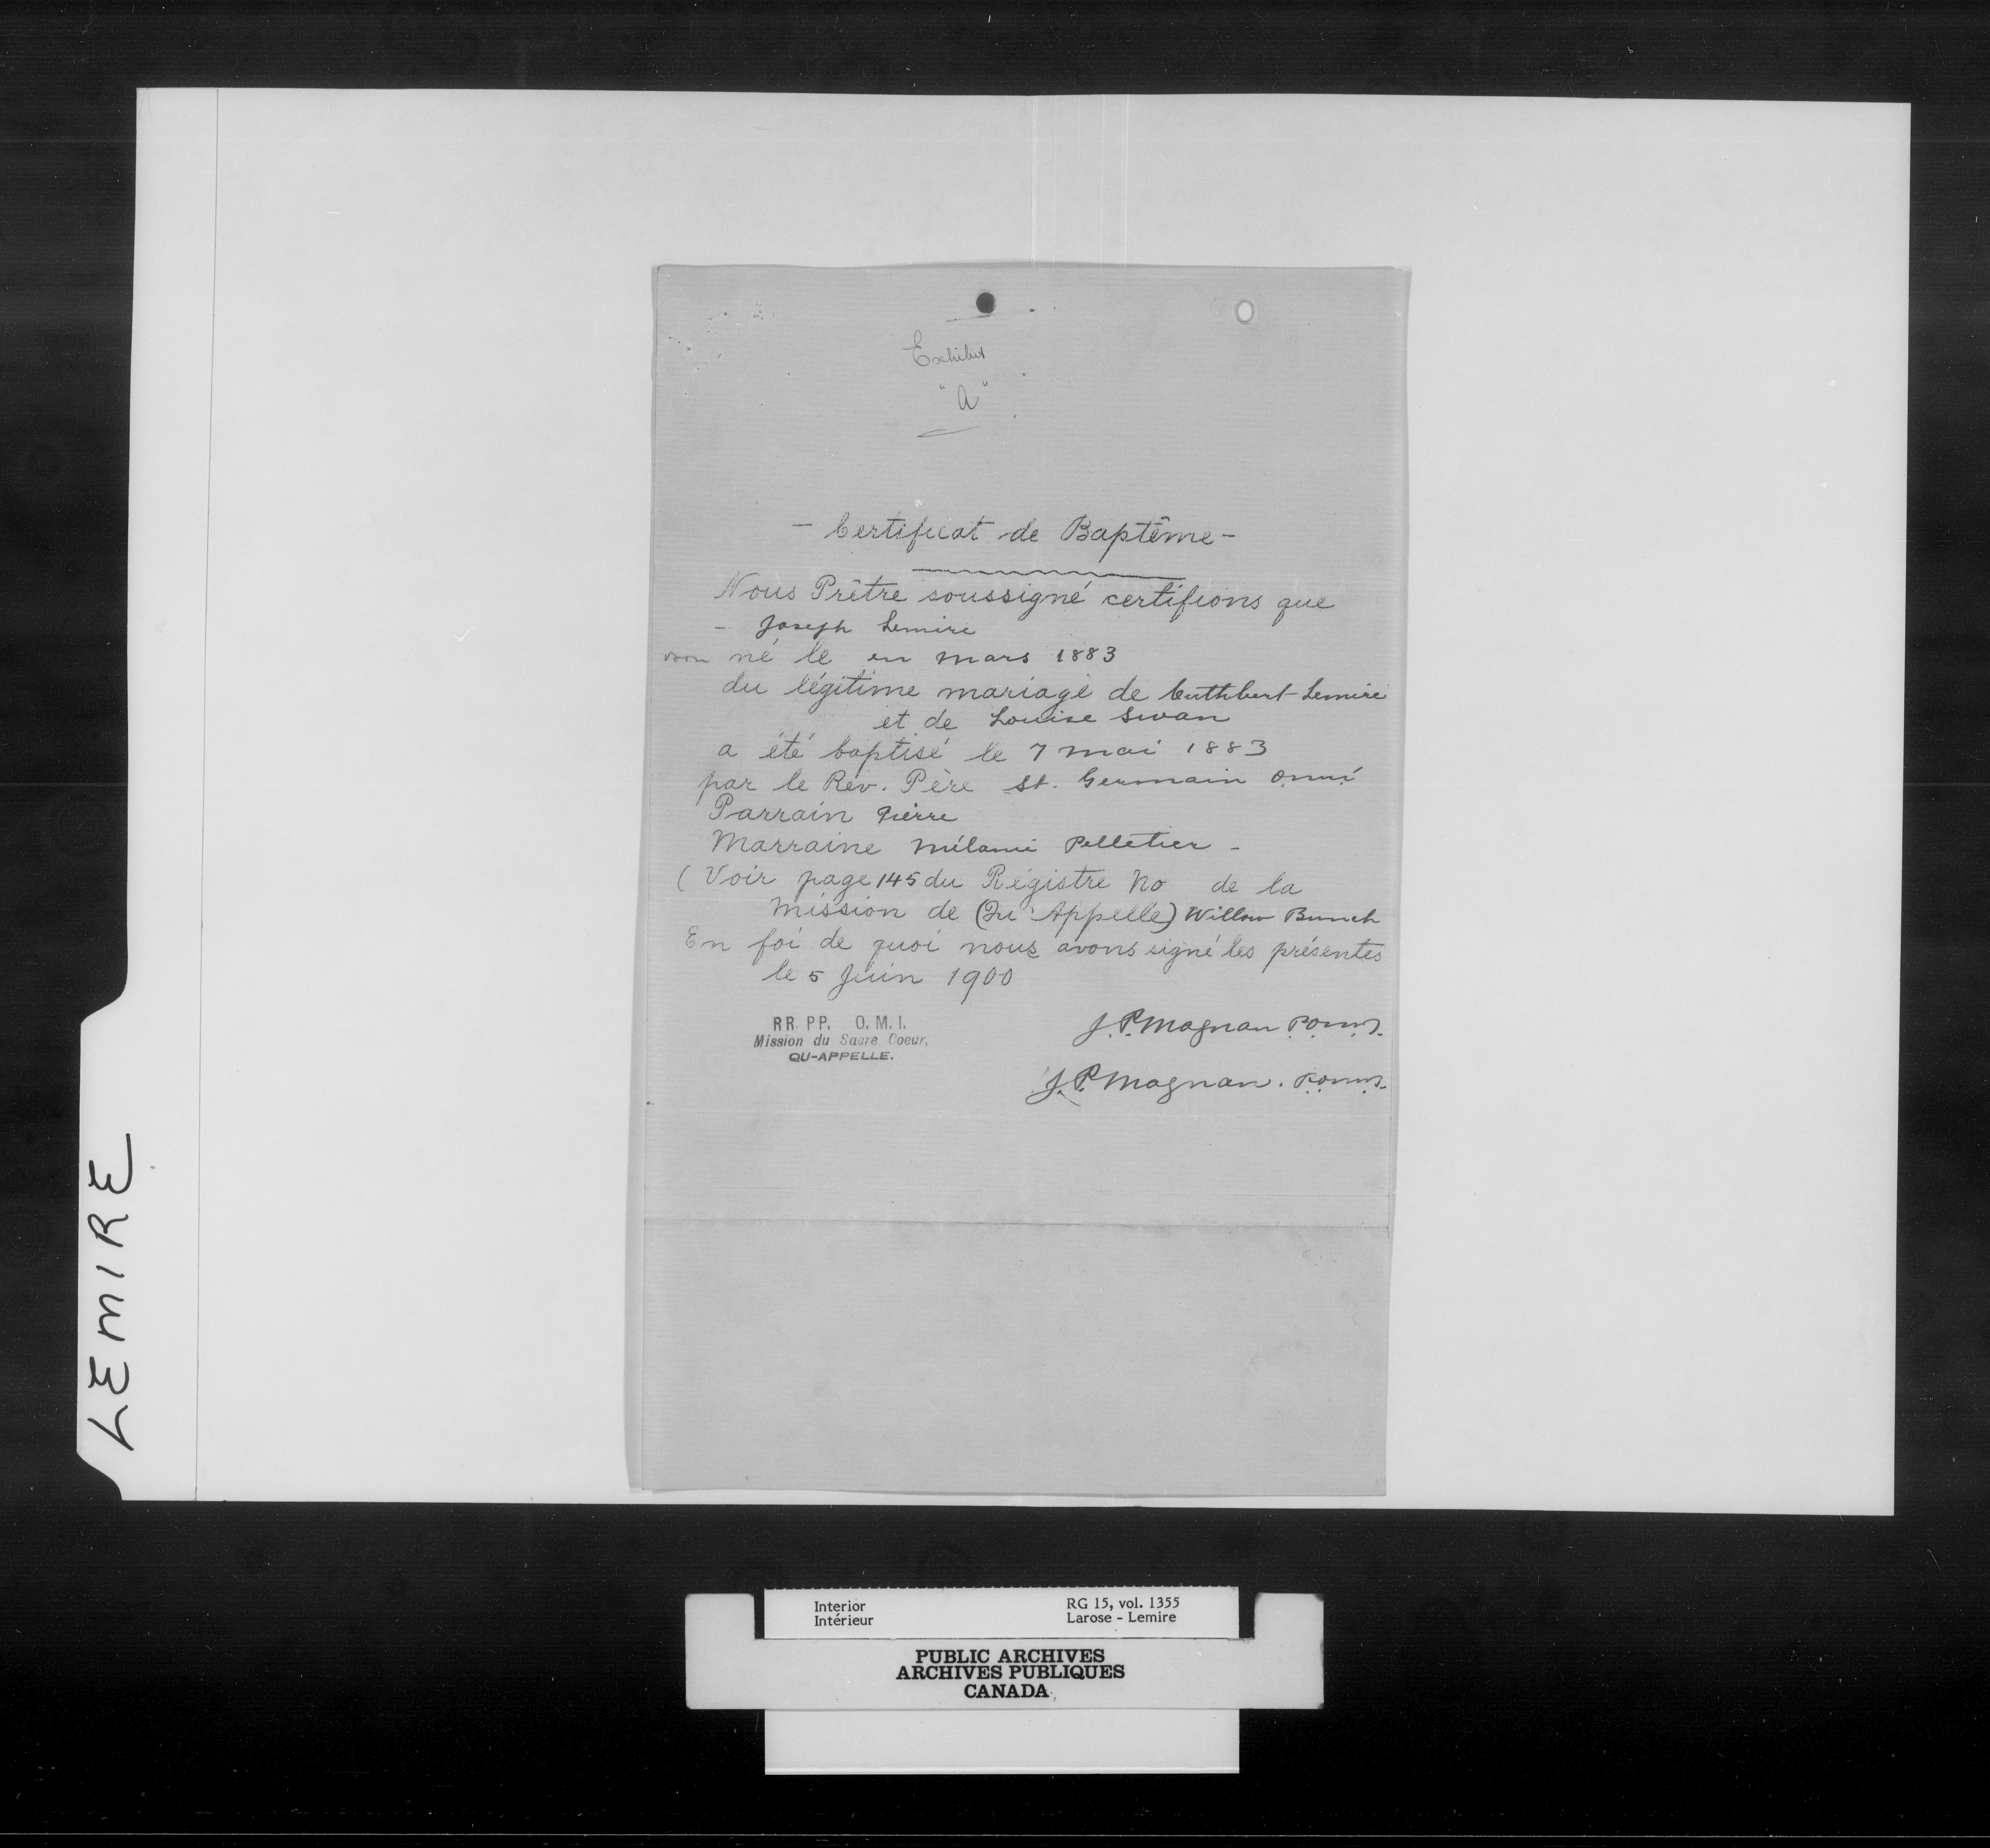 Exhibit
"A"
- Certificat de Baptême -
Nous Prêtre soussigné certifions que
- Joseph Lemire
born né le en mars 1883
du légitime mariage de Cuthbert Lemire
et de Louise Swan
a été baptisé le 7 mai 1883
par le Rév. Père St. Germain o.m.i
Parrain Pierre
Marraine Mélanie Pelletier -
(Voir page 145 du Régistre No de la
Mission de (Qu'Appelle) Willow Bunch
En foi de quoi nous avons signé les présentes
le 5 Juin 1900
RR. PP. O. M. I.
Mission du Sacre Coeur,
QU-APPELLE.
J. P. Magnan P.O.M.I.
J. P. Magnan. P.O.M.I.
LEMIRE
Interior
Intérieur
RG 15, vol. 1355
Larose - Lemire
PUBLIC ARCHIVES
ARCHIVES PUBLIQUES
CANADA